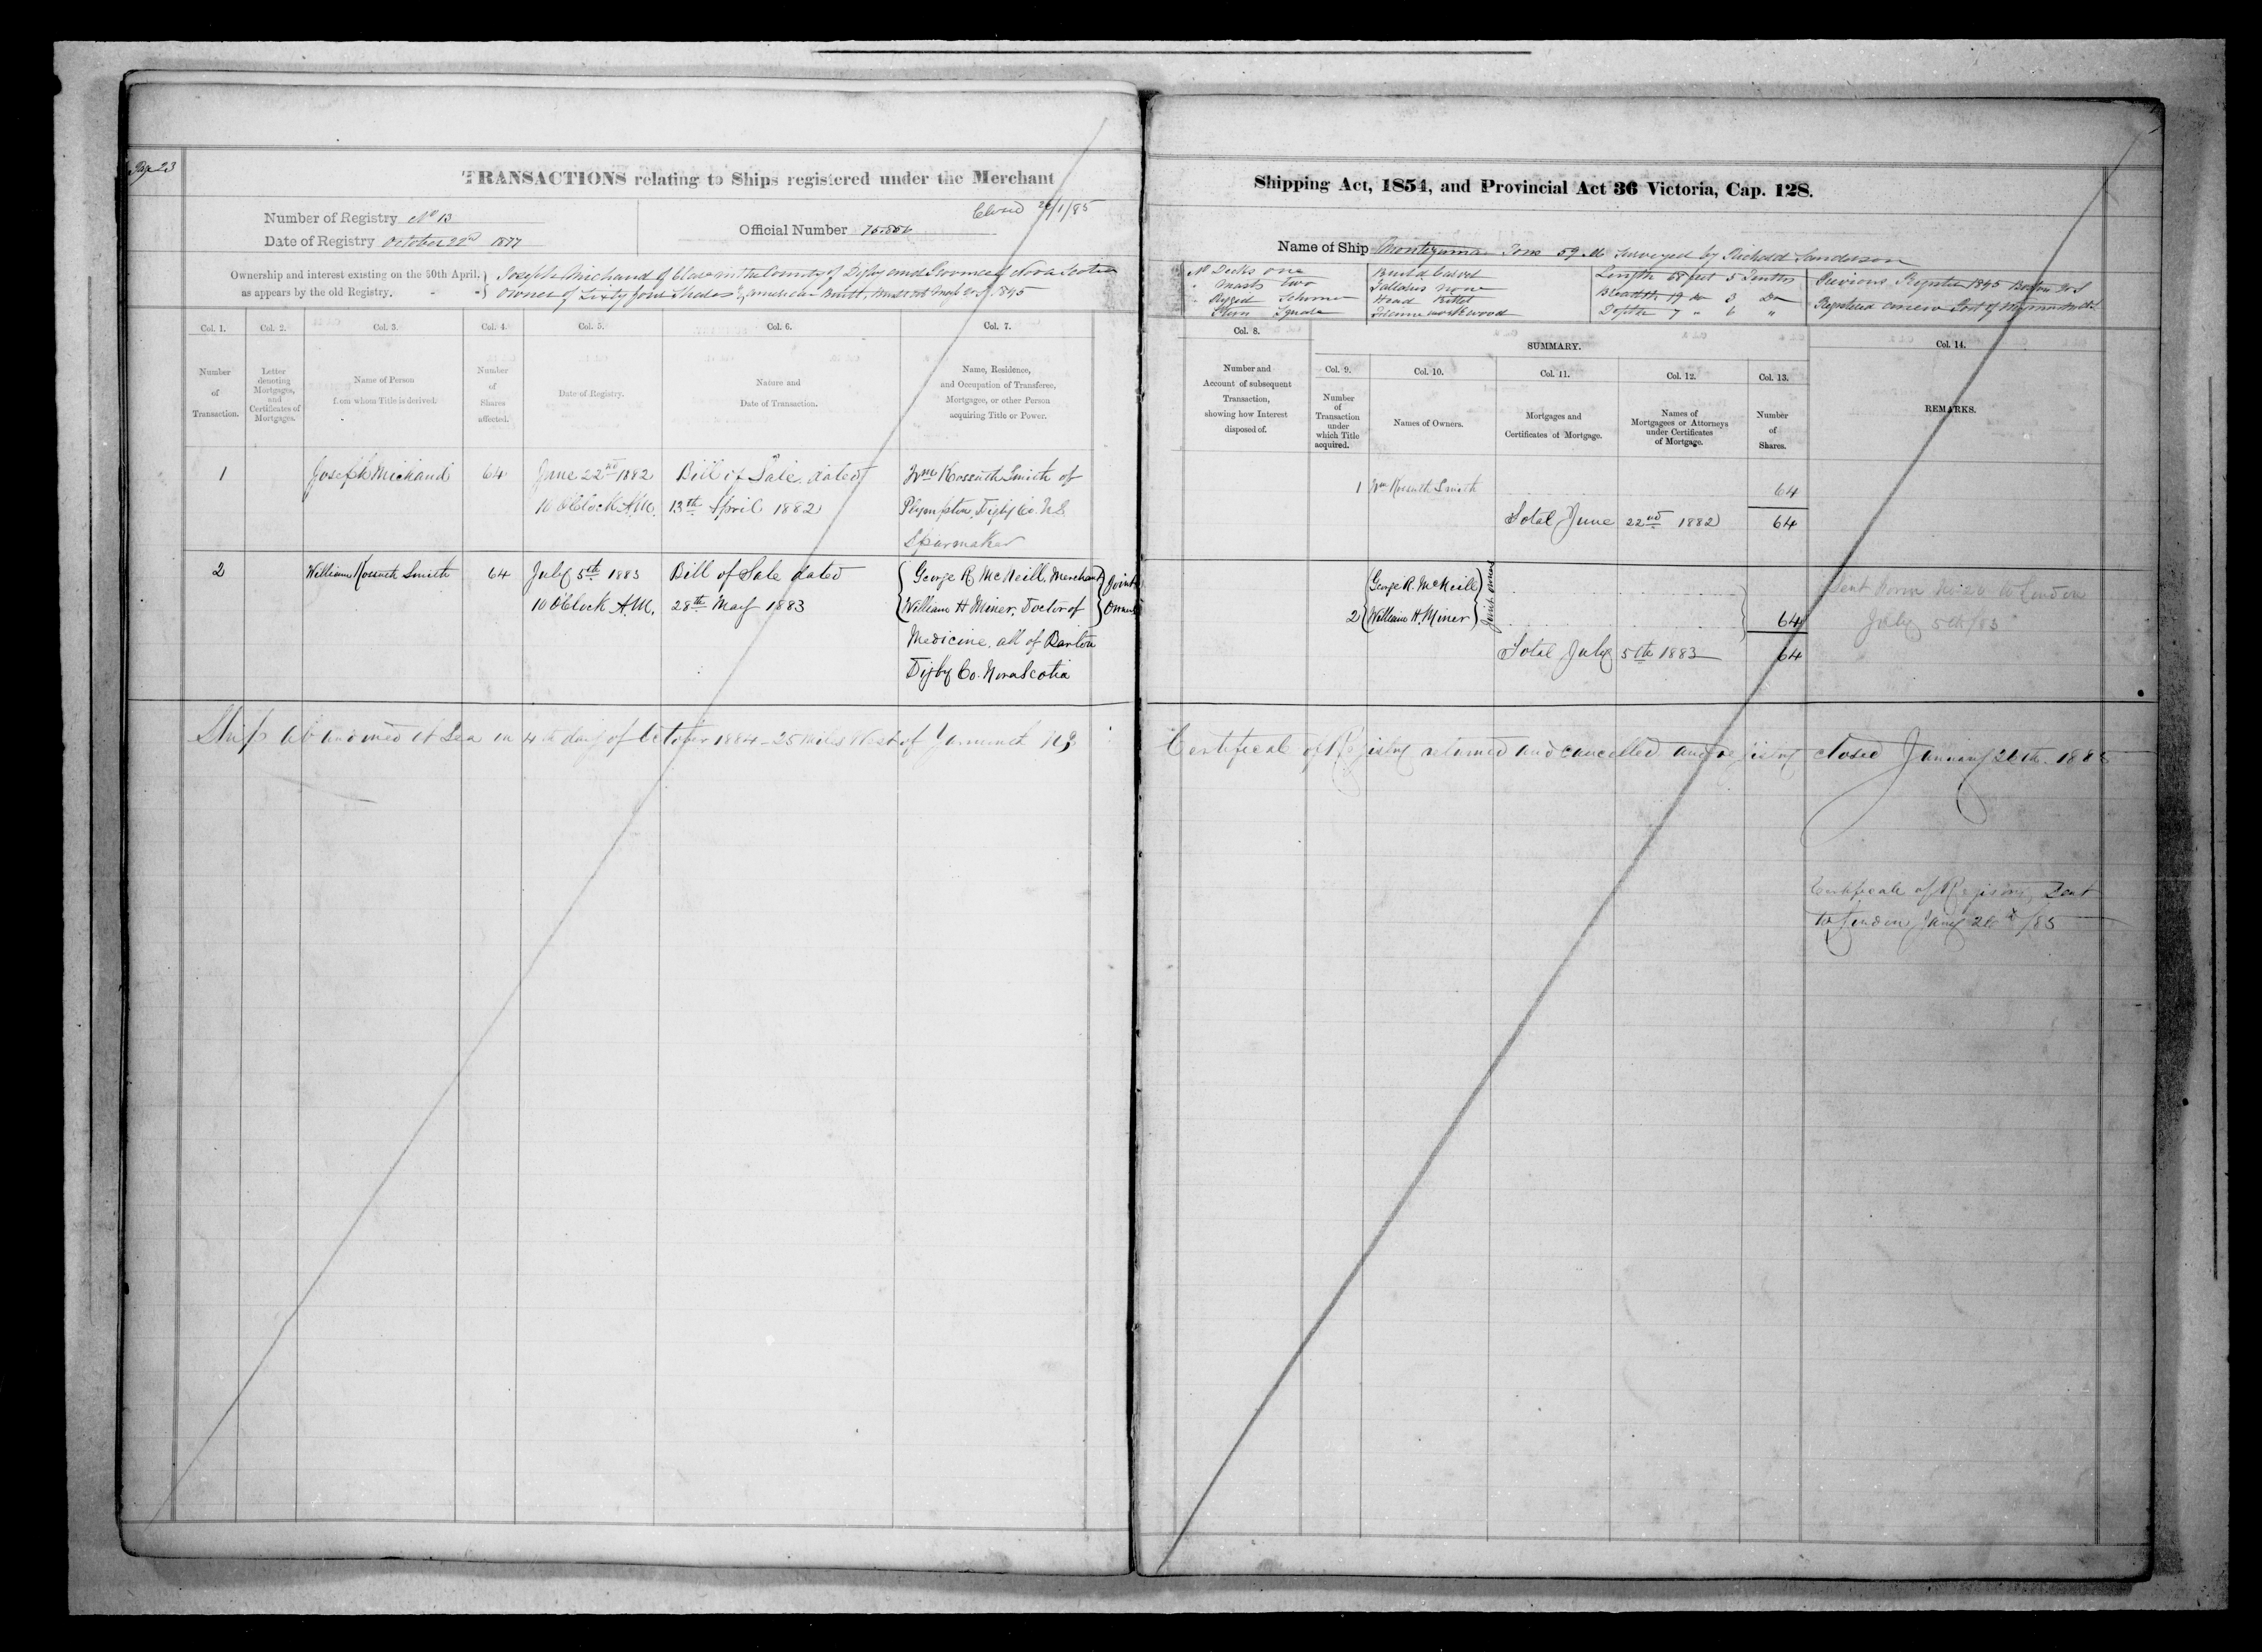 Page 23
TRANSACTIONS relating to Ships registered under the Merchant
Number of Registry No 13
Date of Registry October 22nd 1877
Official Number 75.856
Closed 26/1/85
Ownership and interest existing on the 30th April,
as appears by the old Registry.
Joseph Michaud of Clare in the County of Digby and Province of Nova Scotia
Owner of Sixty four Shares American Built, 1845
Col. 1. Col. 2. Col. 3. Col. 4. Col. 5. Col. 6. Col. 7.
Number of Transaction.
Letter denoting Mortgages, and Certificates of Mortgages.
Name of Person from whom Title is derived.
Number of Shares affected.
Date of Registry.
Nature and Date of Transaction.
Name, Residence, and Occupation of Transferee, Mortgagee, or other Person acquiring Title or Power.
1 Joseph Michaud 64 June 22nd 1882 Bill of Sale dated Wm Kossuth Smith of
10 OClock A.M. 13th April 1882 Plympton, Digby Co. N.S
Sparmaker
2 William Kossuth Smith 64 July 5th 1883 Bill of Sale dated George R McNeill, Merchant Joint
10 OClock A.M. 28th May 1883 William H Miner, Doctor of Owners
Medicine, all of Barton
Digby Co. Nova Scotia
Ship abandoned at Sea on 4th day of October 1884 - 25 miles West of Yarmouth N.S
Shipping Act, 1854, and Provincial Act 36 Victoria, Cap. 128.
Name of Ship Montezuma Tons 59. Surveyed by Richard Sanderson
No Decks one
" Masts two
Rigged Schooner
Stern Square
Build Carvel
Galleries None
Head Billet
Framework wood
Length 68 feet 5 Tenths
Breadth 19 do 3 Do
Depth 7 " 6 "
Previous Register 1845 Boston U.S
Registered anew Port of Weymouth
Col. 8.
Number and Account of subsequent Transaction, showing how Interest disposed of.
SUMMARY.
Col. 9. Col. 10. Col. 11. Col. 12. Col. 13. Col. 14.
Number of Transaction under which Title acquired.
Names of Owners.
Mortgages and Certificates of Mortgage.
Names of Mortgagees or Attorneys under Certificates of Mortgage.
Number of Shares.
REMARKS.
1 Wm Kossuth Smith 64
Total June 22nd 1882 64
George R. McNeill Joint owners
2 William H. Miner 64
Total July 5th 1883 64
Sent Form No 20 to London
July 5th/83
Certificate of Registry returned and cancelled and registry closed January 26th. 1885
Certificate of Registry Sent
to London Jany 26th/85